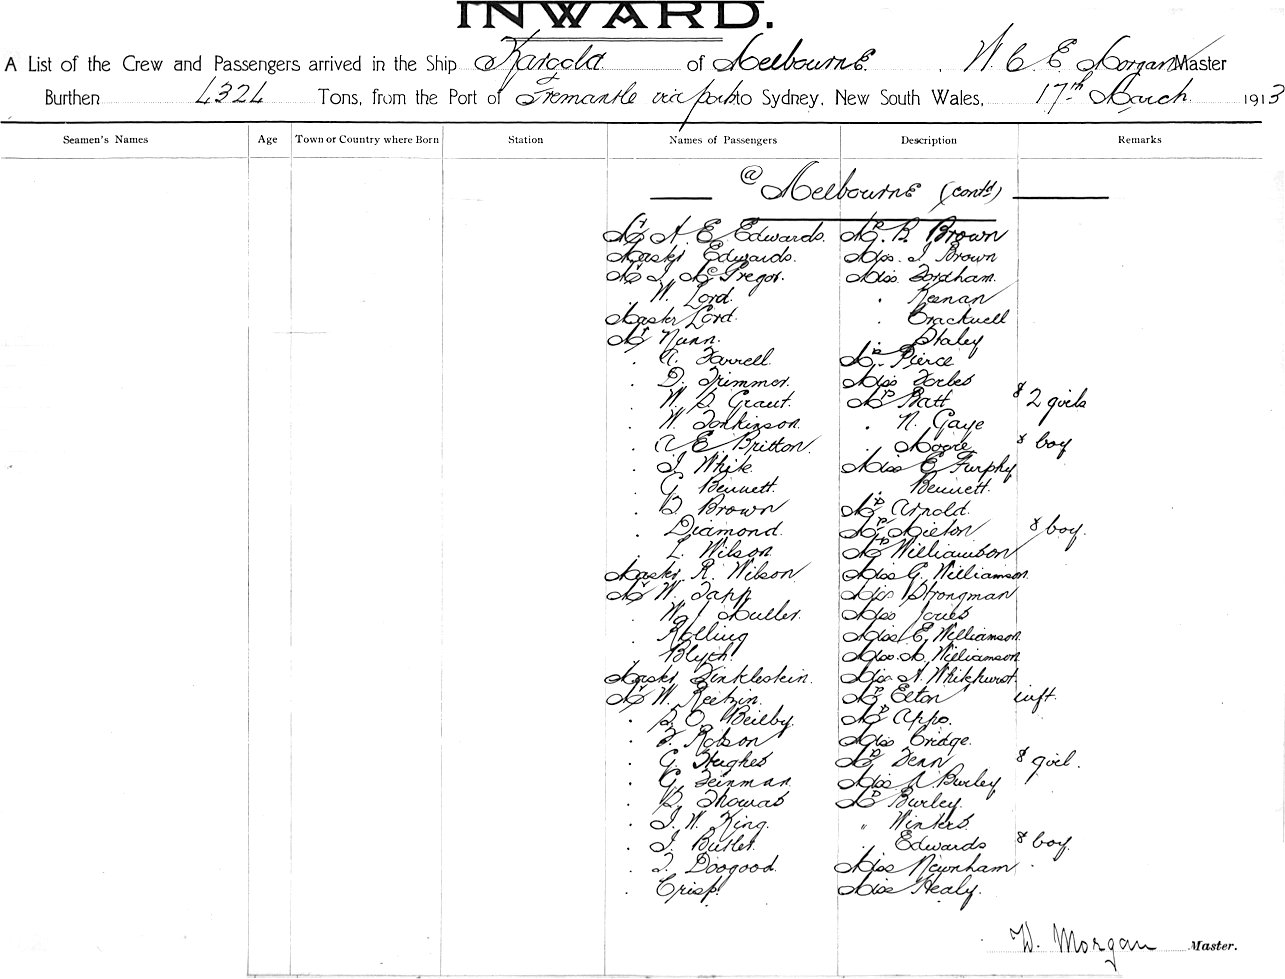 INWARD.
A List of the Crew and Passengers arrived in the Ship Karoola of Melbourne, W. C. E. Morgan Master
Burthen 4324 Tons, from the Port of Fremantle via ports to Sydney, New South Wales, 17th March 1913
Seamen's Names Age Town or Country where Born Station Names of Passengers Description Remarks
@ Melbourne (contd)
Mr A. E. Edwards. Mrs. B. Brown
Master Edwards. Miss. I Brown
Mr J. McGregor. Miss. Fordham.
. W. Lord. . Keenan
Master Lord. . Brackwell
Mr Nunn. . Staley
. A. Farrell. Mrs. Pierce
. D. Trimmer. Miss Forbes
. W. S. Grant. Mrs Batt & 2 girls
. W. Tonkinson. . N. Gaye
. A E Britton. . Moore & boy
. J. White. Miss E Furphy
. G. Bennett. . Bennett.
. B. Brown Mrs Arnold.
. Diamond. Mrs Mielon & boy.
. L. Wilson. Mrs Williamson
Master R. Wilson Miss G. Williamson.
Mr W. Tapp Miss Strongman
. W. J. Muller. Miss Jones
. Rolling Miss E. Williamson.
. Blyth. Miss. M. Williamson.
Master Finklestein. Miss N. Whitehurst.
Mr W. Reetzin. Mrs Elton inft.
. S. O. Beilby. Mrs Apps.
. F. Robson Miss Cridge.
. G. Hughes Mrs Fenn & girl.
. G. Feinman. Miss A Burley
. B. Thomas Mrs Burley.
. J. W. King. " Winters
. J. Butler. . Edwards & boy.
. T. Doogood. Miss Newnham
. Crisp. Miss Healy.
W. Morgan Master.